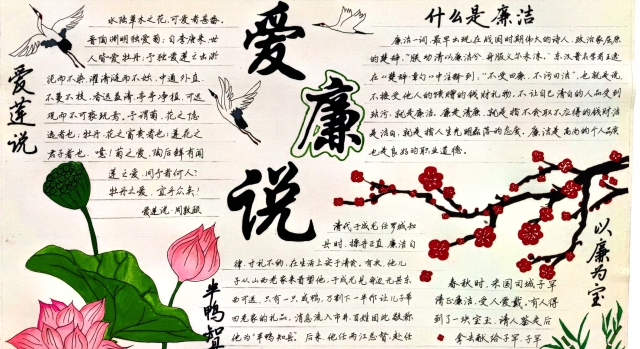 爱莲说
水陆草木之花,可爱者甚番。
晋陶渊明独爱菊;自李唐来,世
人皆爱牡丹;予独爱莲之出淤
泥而不染,濯清涟而不妖,中通外直,
不蔓不枝,香远益清,亭亭净植,可远
观而不可亵玩焉。予谓菊,花之隐
逸者也;牡丹,花之富贵者也;莲花之
君子者也。噫!菊之爱,陶后鲜有闻
莲之爱,同予者何人?
牡丹之爱,宜乎众矣!
爱莲说·周敦颐
爱
廉
说
什么是廉洁
廉洁一词,最早出现在战国时期伟大的诗人,政治家屈原
的楚辞。"朕幼清以廉洁兮,身服义尔未沫。"东汉著名学者王逸
在《楚辞·章句》中注释到:"不受曰廉,不污曰洁",也就是说,
不接受他人的馈赠的钱财礼物,不让自己清白的人品受到
玷污,就是廉洁。廉是清廉,就是指不贪取不应得的钱财;洁
是洁白,就是指人生光明磊落的态度。廉洁是高尚的个人品质
也是良好的职业道德。
半鸭知县
清代于成龙任罗城知
县时,操舟
廉洁自
律,寸礼不纳,在生活上安于清贫。有次,他儿
子从山西老家来看望他,于成龙见身边无甚东
西可送,只有一只咸鸭,乃割下一半作让儿子带
回老家的礼品。消息流入市井百姓因此敬称
他为"半鸭知县"。后来,他任两江总督,赴任
以廉为宝
春秋时,宋国司城子罕
清正廉洁,受人爱戴。有人得
到了一块宝玉,请人鉴定后
拿去献给子罕,子罕